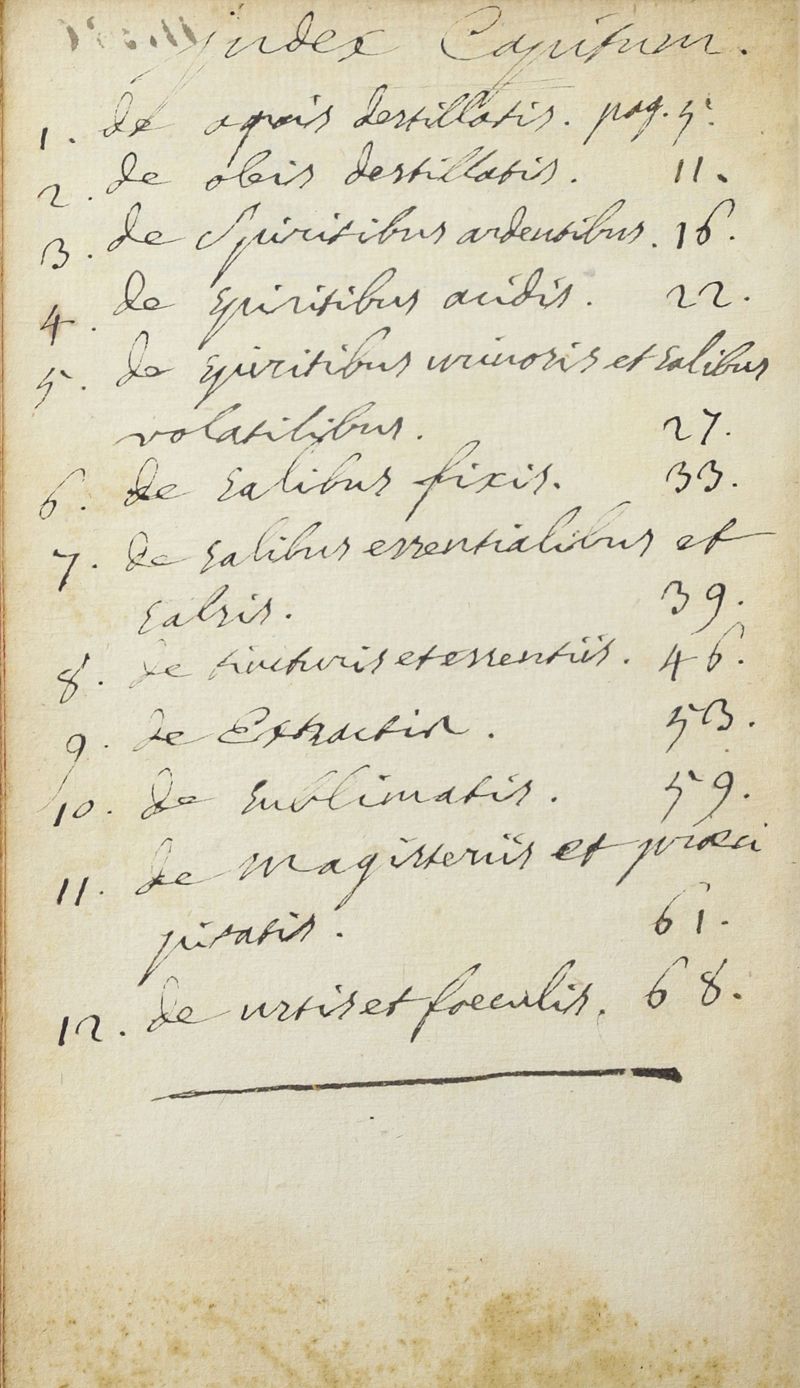 Index Capitum.
1. de aquis destillatis. pag. 5.
2. de oleis destillatis. 11.
3. de Spiritibus ardentibus. 16.
4. de spiritibus acidis. 22.
5. de spiritibus urinosis et salibus
volatilibus. 27.
6. de salibus fixis. 33.
7. de salibus essentialibus et
salsis. 39.
8. de tincturis et essentiis. 46.
9. de Extractis. 53.
10. de sublimatis. 59.
11. de Magisteriis et præci
pitatis. 61.
12. de ustis et foeculis. 68.